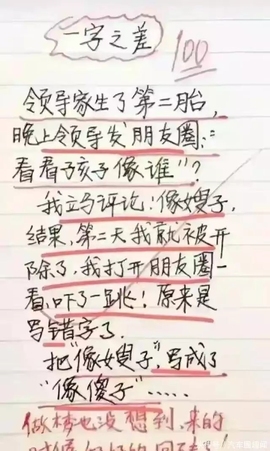 一字之差
100
领导家生了第二胎,
晚上领导发朋友圈:"
看看孩子像谁"?
我立马评论:像嫂子,
结果,第二天我就被开
除了,我打开朋友圈一
看,吓了一跳!原来是
写错字了,
把"像嫂子",写成了
"像傻子"……
做梦也没想到,来的